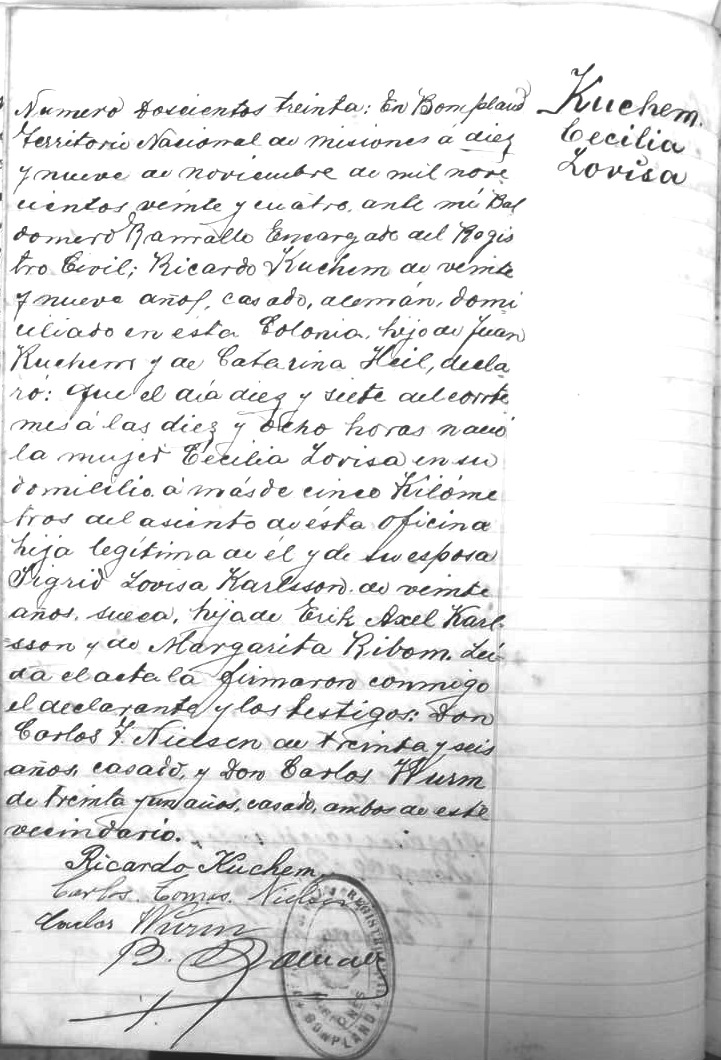 Kuchem.
Cecilia
Lovisa
Numero Doscientos treinta: En Bompland
Territorio Nacional de misiones á diez
y nueve de noviembre de mil nove
cientos veinte y cuatro, ante mi Bal
domero Ramallo Encargado del Regis
tro Civil; Ricardo Kuchem de veinte
y nueve años, casado, alemán, domi
ciliado en esta Colonia, hijo de Juan
Kuchem y de Catarina Heil, decla-
ró: que el día diez y siete del corrte
mes á las diez y ocho horas nació
la mujer Cecilia Lovisa en su
domicilio á más de cinco Kilóme
tros del asiento de ésta oficina
hija legítima de él y de su esposa
Sigrid Lovisa Karlsson de veinte
años, sueca, hija de Erik Axel Karl-
sson y de Margarita Ribom. Lei-
da el acta la firmaron conmigo
el declarante y los testigos: Don
Carlos T. Nielsen de treinta y seis
años, casado, y Don Carlos Wurm
de treinta y un años, casado, ambos de este
vecindario.
Ricardo Kuchem,
Carlos Tomas Nielsen
Carlos Wurm
B.
REGISTRO
MISIONES
BOMPLAND